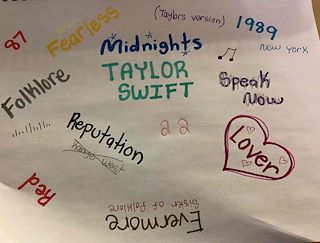 87
Fearless
(Taylors version)
1989
NEW YORK
Midnights
TAYLOR
SWIFT
Folklore
Speak
Now
Reputation
Kanye West
22
Lover
Red
Evermore
Sister of folklore